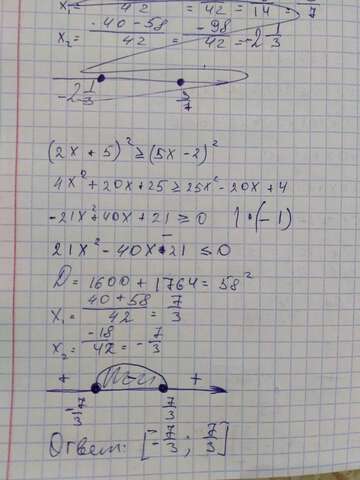 x₁ = 42 = 42 = 14 = 7
x₂ = (-40-58)/42 = -98/42 = -2 1/3
-2 1/3 3/7
(2x+5)² ≥ (5x-2)²
4x²+20x+25 ≥ 25x²-20x+4
-21x²+40x+21 ≥ 0 | ·(-1)
21x²-40x-21 ≤ 0
D = 1600+1764 = 58²
x₁ = (40+58)/42 = 7/3
x₂ = -18/42 = -7/3
+ +
-7/3 7/3
Ответ: [-7/3; 7/3]